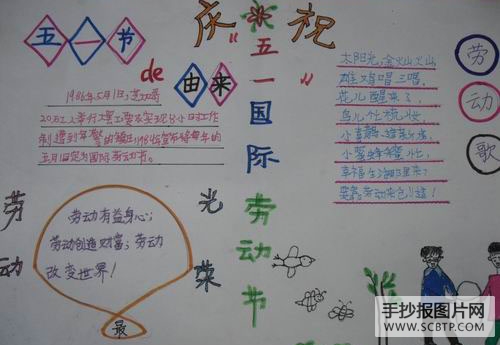 五一节
de
由来
庆祝
“五一国际劳动节
劳动歌
1986年5月1日,芝加哥
20万工人举行大罢工要求实现8小时工作
制遭到军警的镇压
五月1日定为国际劳动节。
太阳光,金灿灿,
雄鸡唱三唱,
花儿醒来了,
鸟儿忙梳妆,
小喜鹊,造新房,
小蜜蜂采蜜忙,
幸福生活哪里来?
要靠劳动来创造!
劳动
最
光荣
劳动有益身心;
劳动创造财富;劳动
改变世界!
手抄报图片网
WWW.SCBTP.COM